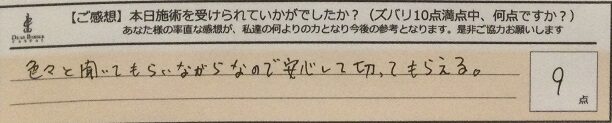 【ご感想】本日施術を受けられていかがでしたか？（ズバリ10点満点中、何点ですか？）
あなた様の率直な感想が、私達の何よりの力となり今後の参考となります。是非ご協力お願いします
色々と聞いてもらいながらなので安心して切ってもらえる。
9
点